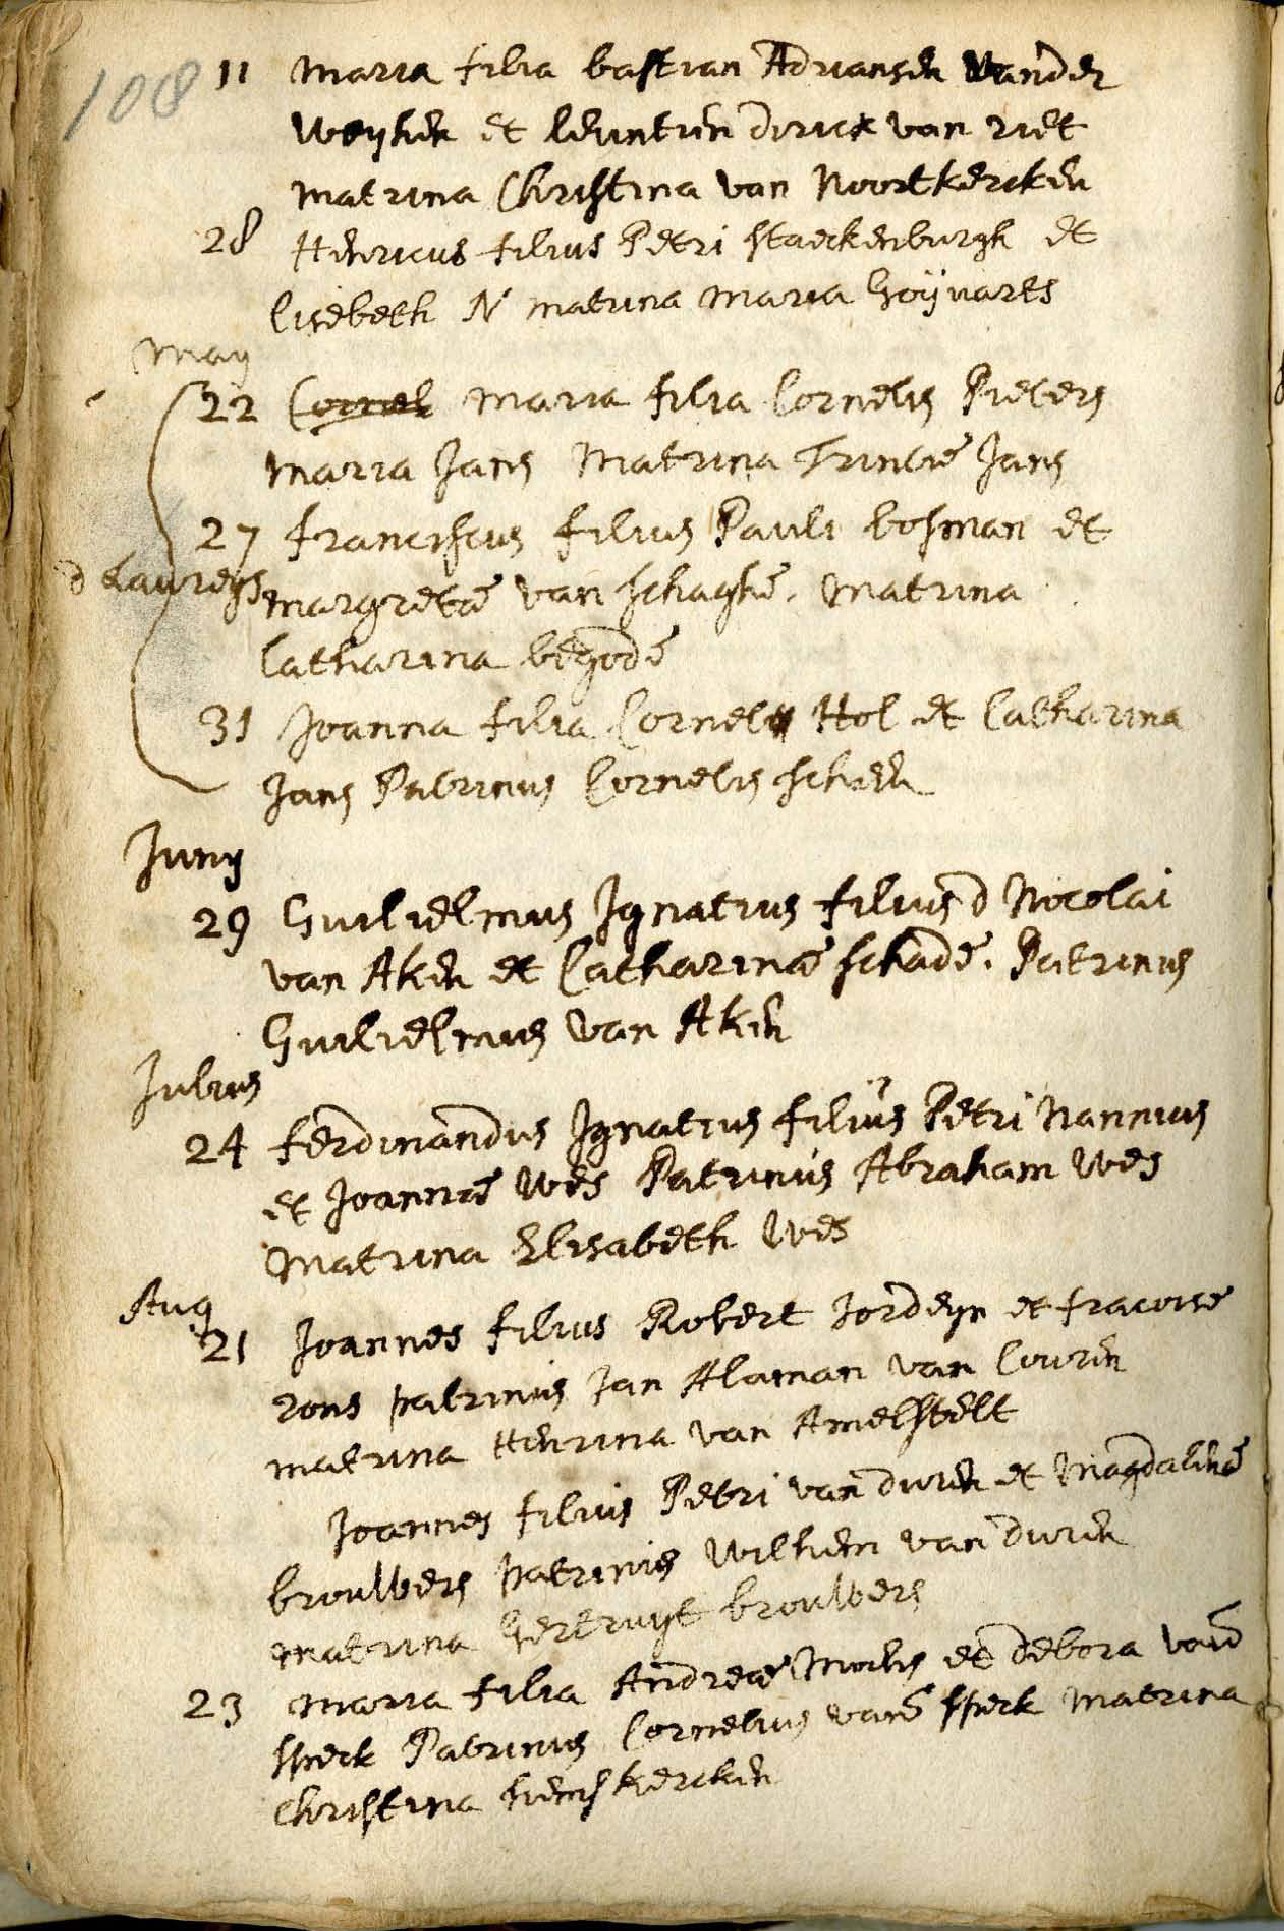 108
11 Maria filia bastian Adriansen vander
Weyhen et leuntien dirick van riet
matrina Christina van Noortkercken
28 Henricus filius Petri staeckenburgh et
lisebeth N matrina Maria Goÿvarts
May
22 Cornel Maria filia Cornelis Pieters
Maria Jans Matrina Trintie Jans
27 franciscus filius Pauli bosman et
d Laureys
margretæ van schaghe. Matrina
Catharina begode
31 Joanna filia Cornelis Hol et Catharina
Jans Patrinus Cornelis schen
Juny
29 Guilielmus Ignatius filius d Nicolai
van Aken et Catharinæ schade. Patrinus
Guilielmus van Aken
Julius
24 ferdinandus Ignatius filius Petri Nannius
et Joannæ Wes Patrinus Abraham Wes
Matrina Elisabeth Wes
Aug
21 Joannes filius Robert Jordeyn et fracoise
rons patrinus Jan Alaman van Couren
matrina Henrina van Amelstelt
Joannes filius Petri van duren et Magdalenæ
brouwers patrinus Wilhem van duren
matrina Gertruyt brouwers
23 Maria filia Andreæ et debora vand
speck Patrinus Cornelius vand speck Matrina
Christina hemskercken